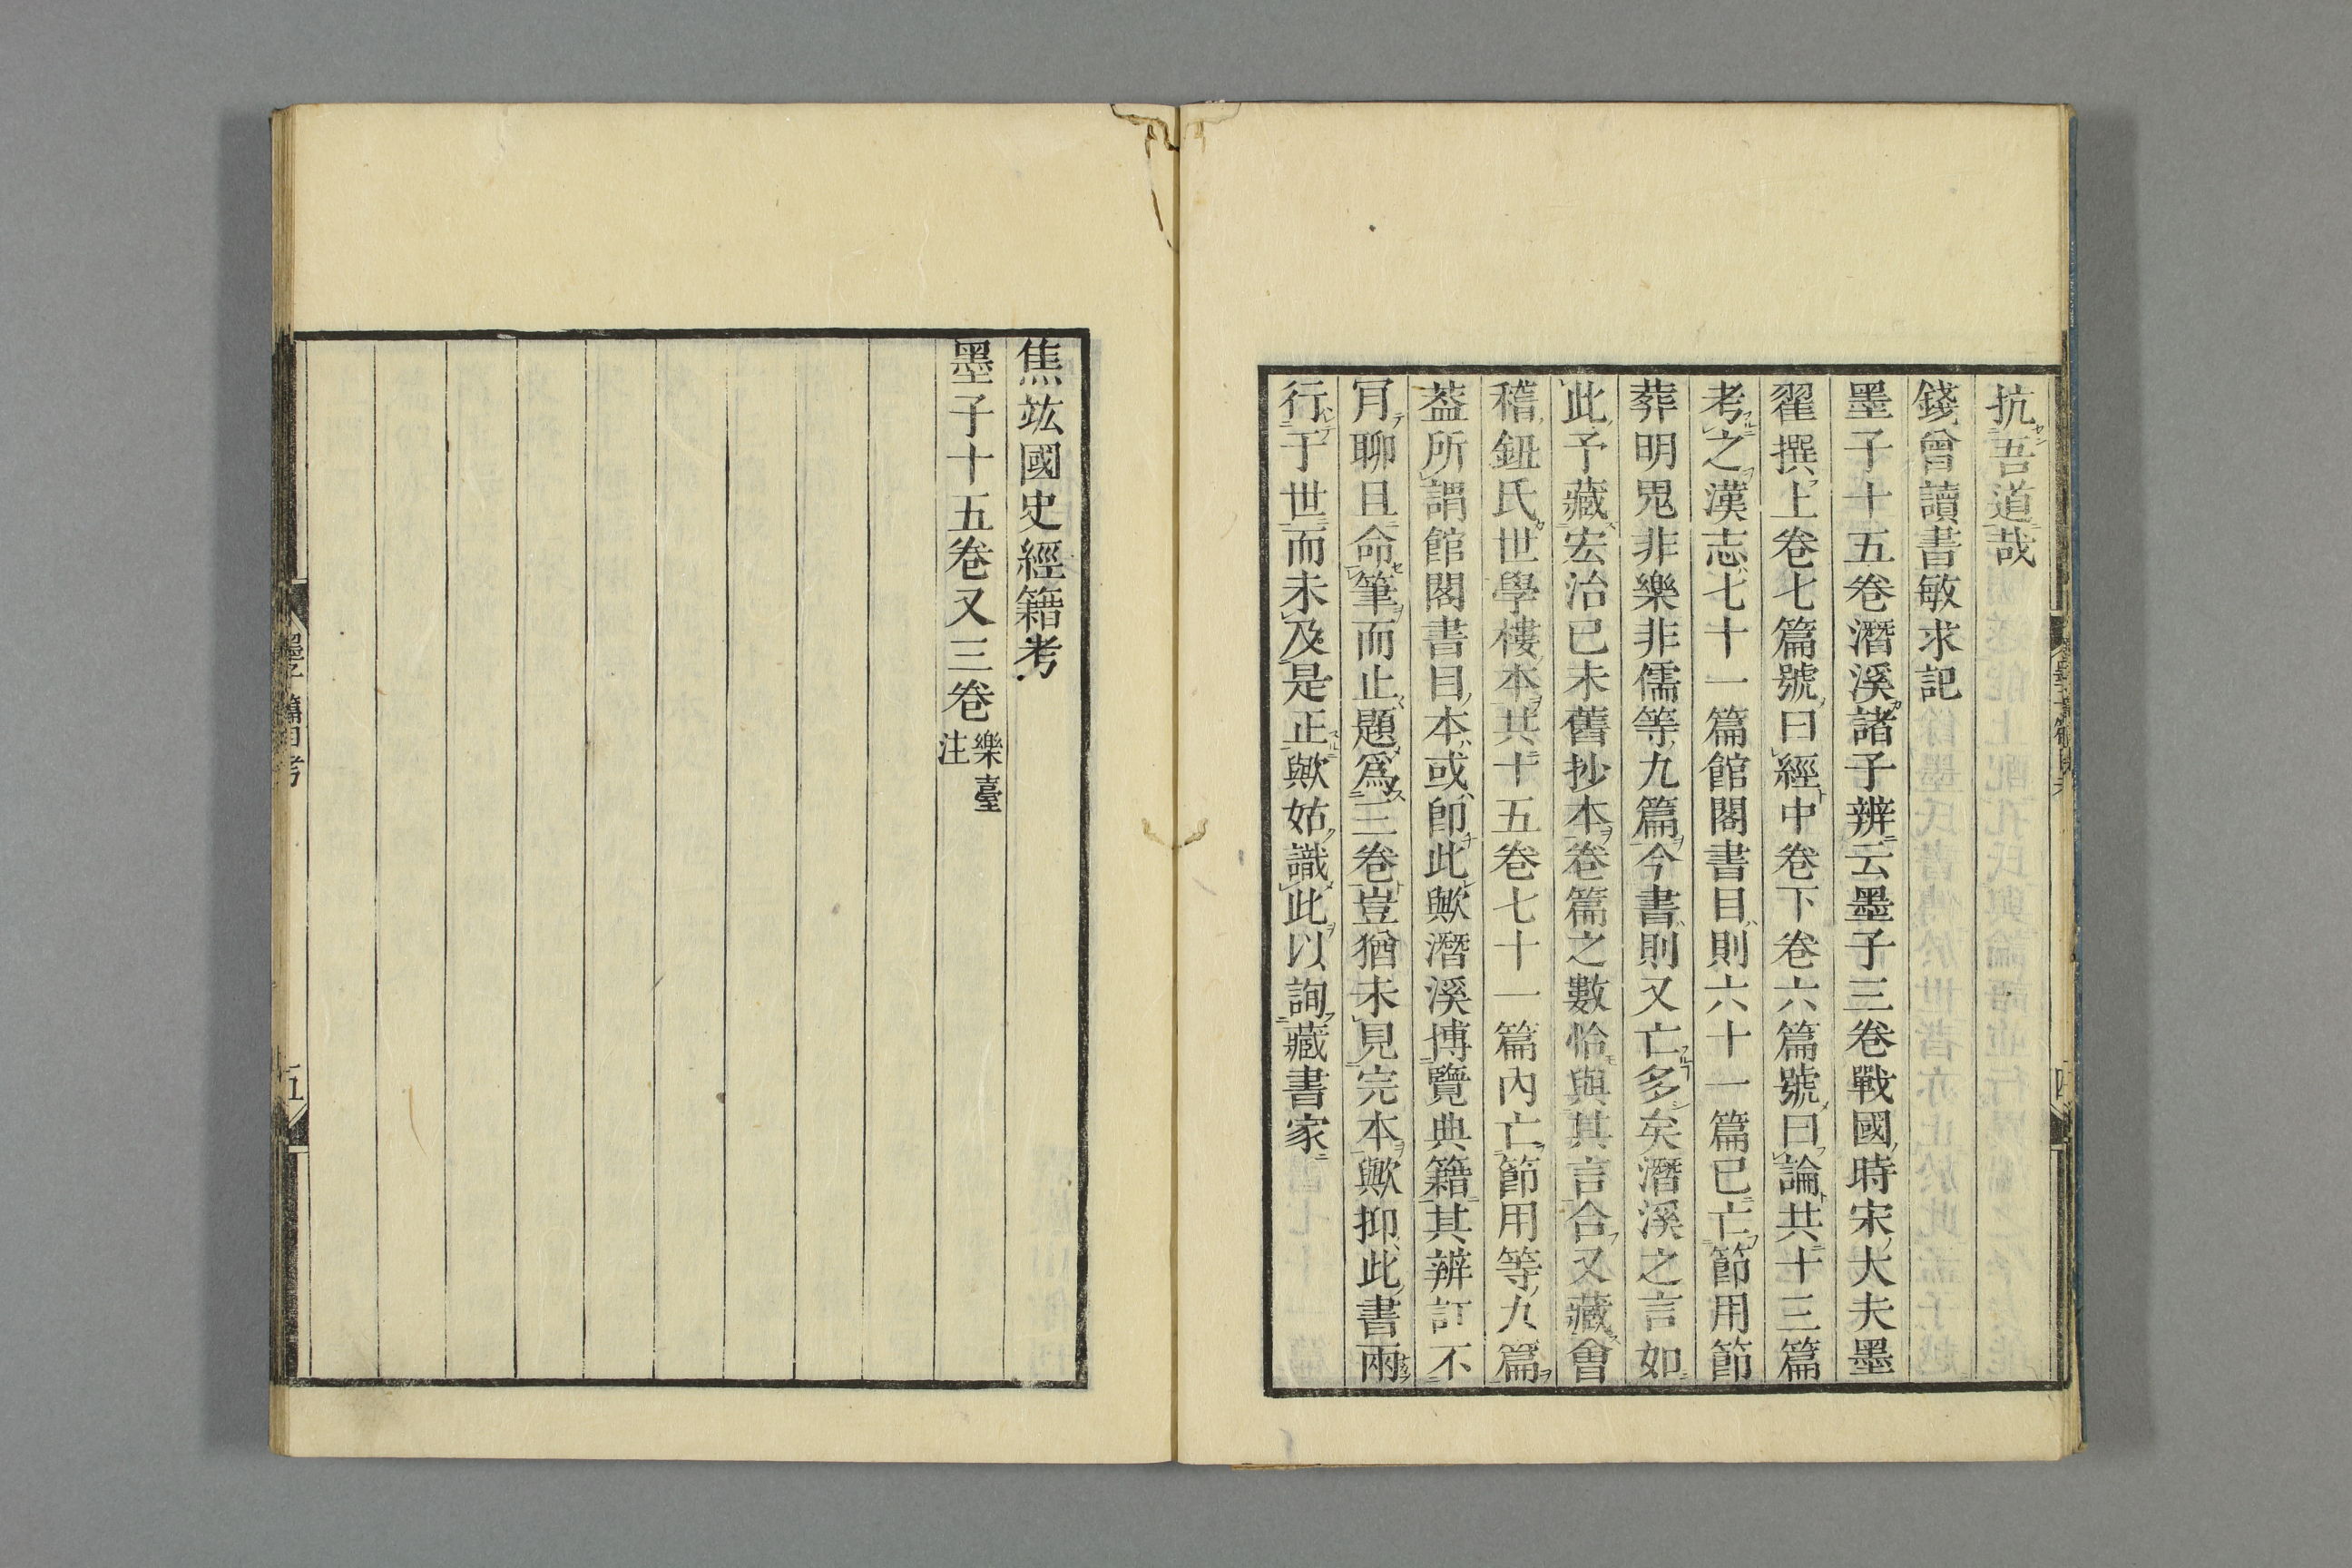 抗吾道哉
錢曾讀書敏求記
墨子十五卷潛溪諸子辨云墨子三卷戰國時宋大夫墨
翟撰上卷七篇號曰經中卷下卷六篇號曰論共十三篇
考之漢志七十一篇館閣書目則六十一篇已亡節用節
葬明鬼非樂非儒等九篇今書則又亡多矣潛溪之言如
此予藏宏治己未舊抄本卷篇之數恰與其言合又藏會
稽鈕氏世學樓本共十五卷七十一篇內亡節用等九篇
葢所謂館閣書目本或卽此歟潛溪博覽典籍其辨訂不
肎聊且命筆而止題爲三卷豈猶未見完本歟抑此書兩
行于世而未及是正歟姑識此以詢藏書家
焦竑國史經籍考
墨子十五卷又三卷樂臺注
墨子篇目考
五